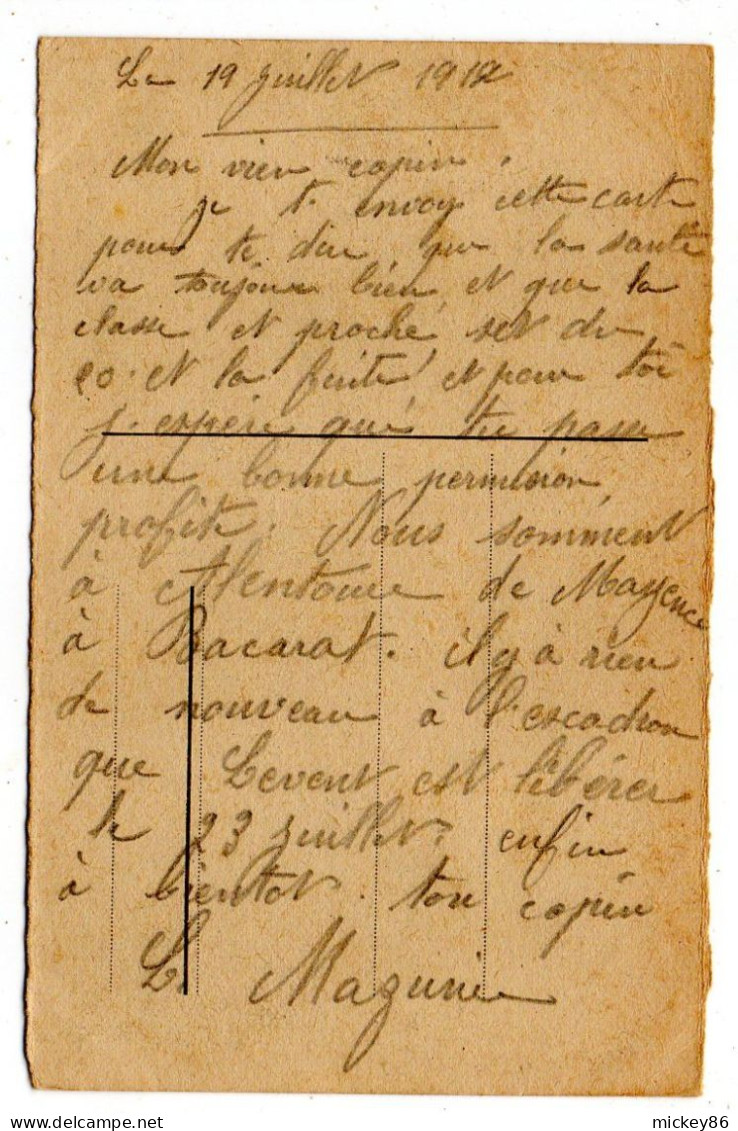 Le 19 Juillet 1912
Mon vieu copin.
je t. envoy cette carte
pour te dire que la santé
va toujour bien et que la
classe et proche set du
90. et la fuite et pour toi
j. espère que tu passe
une bonne permision
profite. Nous somment
à Alentoure de Mayence
à Bacarat. il y à rien
de nouveau à l'escadron
que Levent est libérer
le 23 Juillet. enfin
à bientot. ton copin
L. Magunie
mickey86